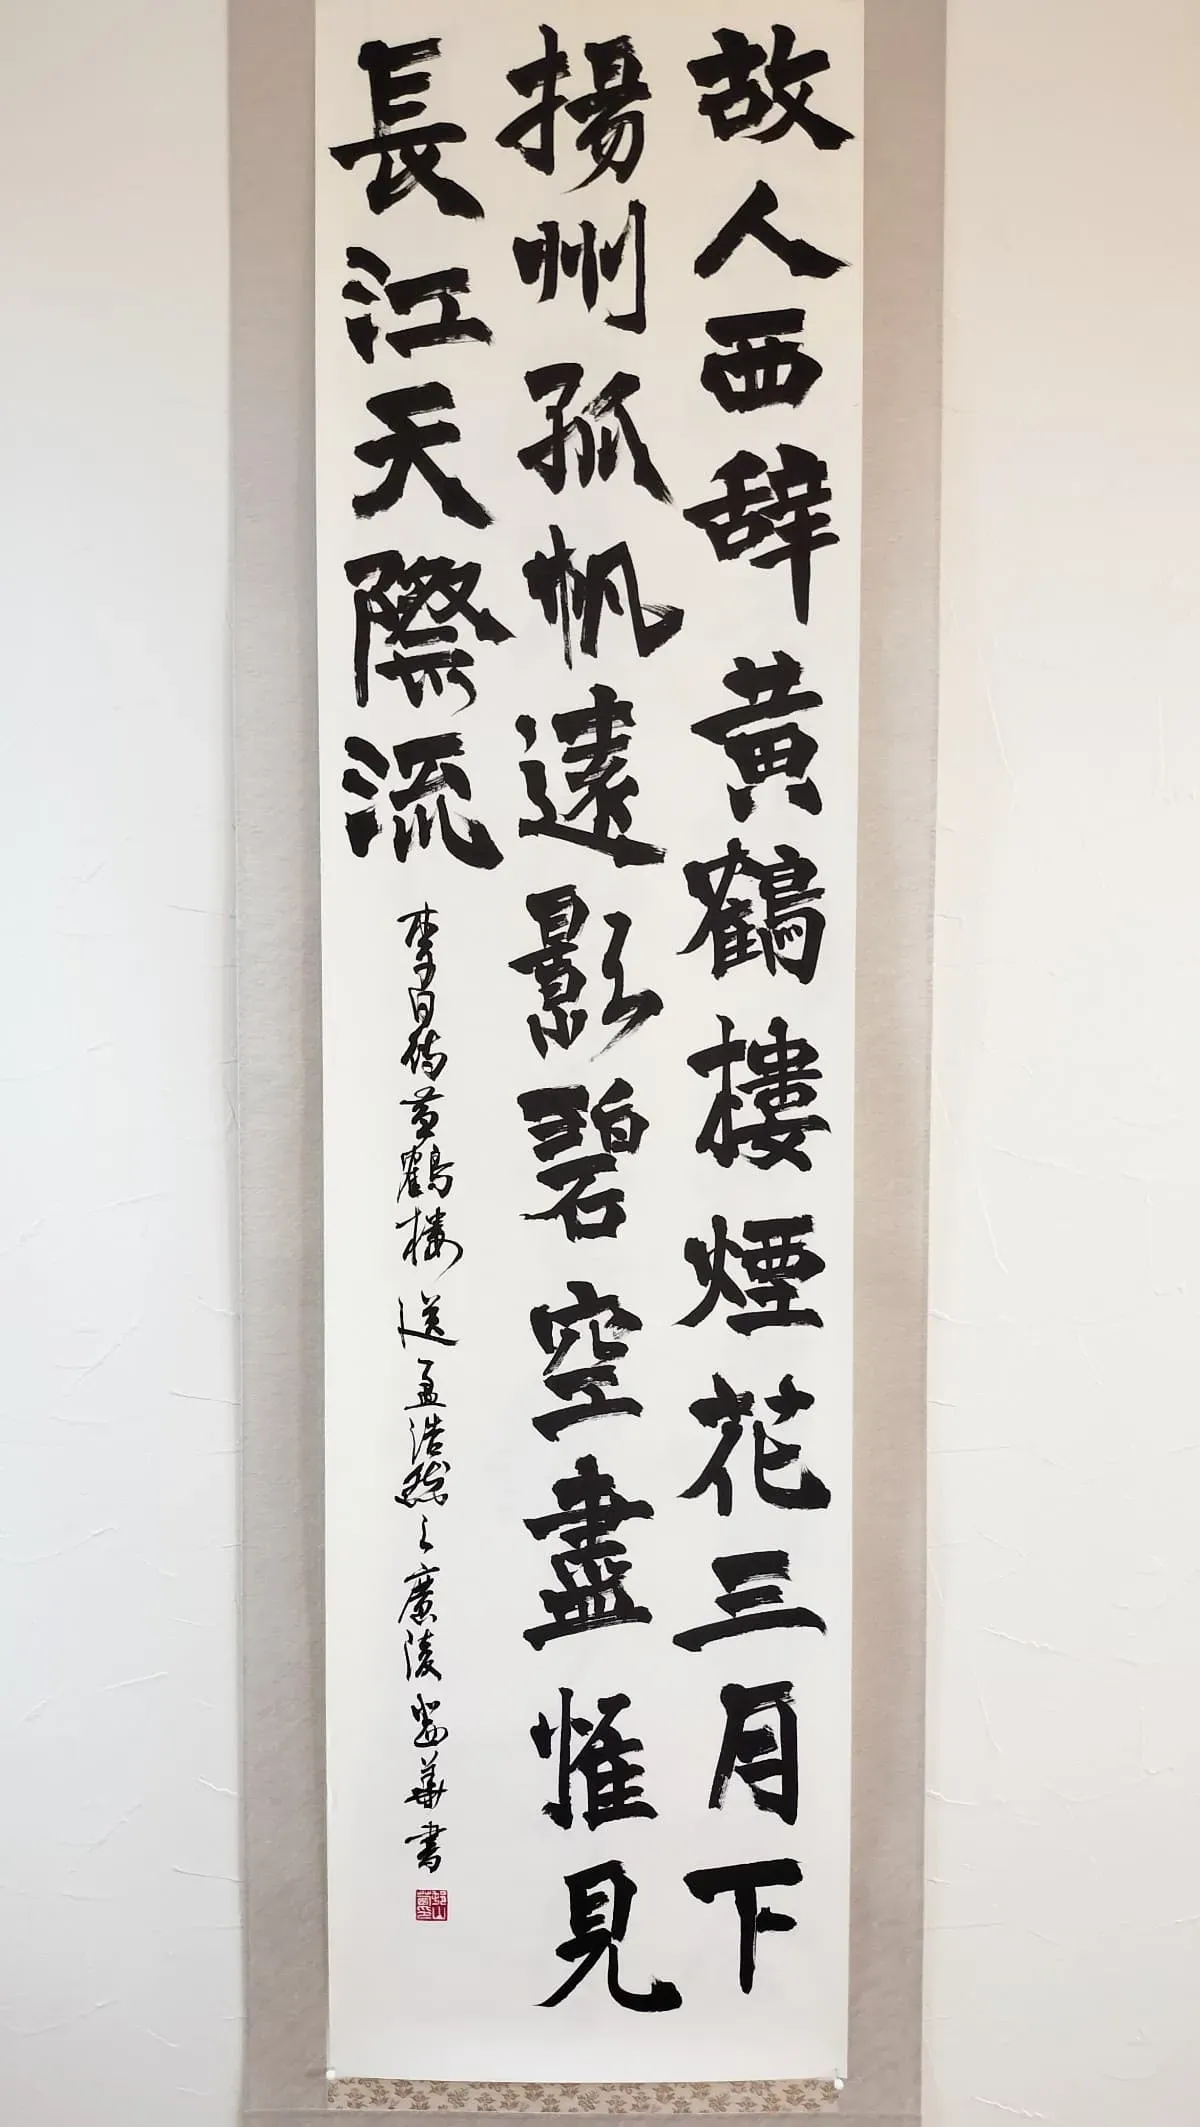 故人西辞黄鶴樓煙花三月下
揚州孤帆遠影碧空盡惟見
長江天際流
李白 黄鶴樓送孟浩然之廣陵 華書